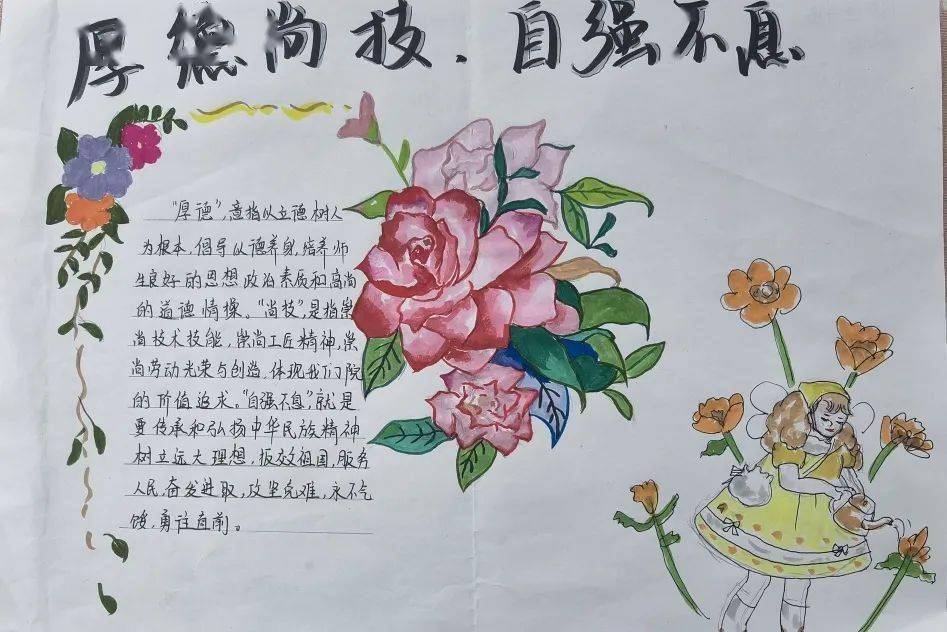 厚德尚技.自强不息
"厚德",意指以立德树人
为根本,倡导以德养身,培养师
生良好的思想政治素质和高尚
的道德情操。"尚技",是指崇
尚技术技能,崇尚工匠精神,崇
尚劳动光荣与创造,体现我们院
的价值追求。"自强不息",就是
要传承和弘扬中华民族精神
树立远大理想,报效祖国,服务
人民,奋发进取,攻坚克难,永不气
馁,勇往直前。